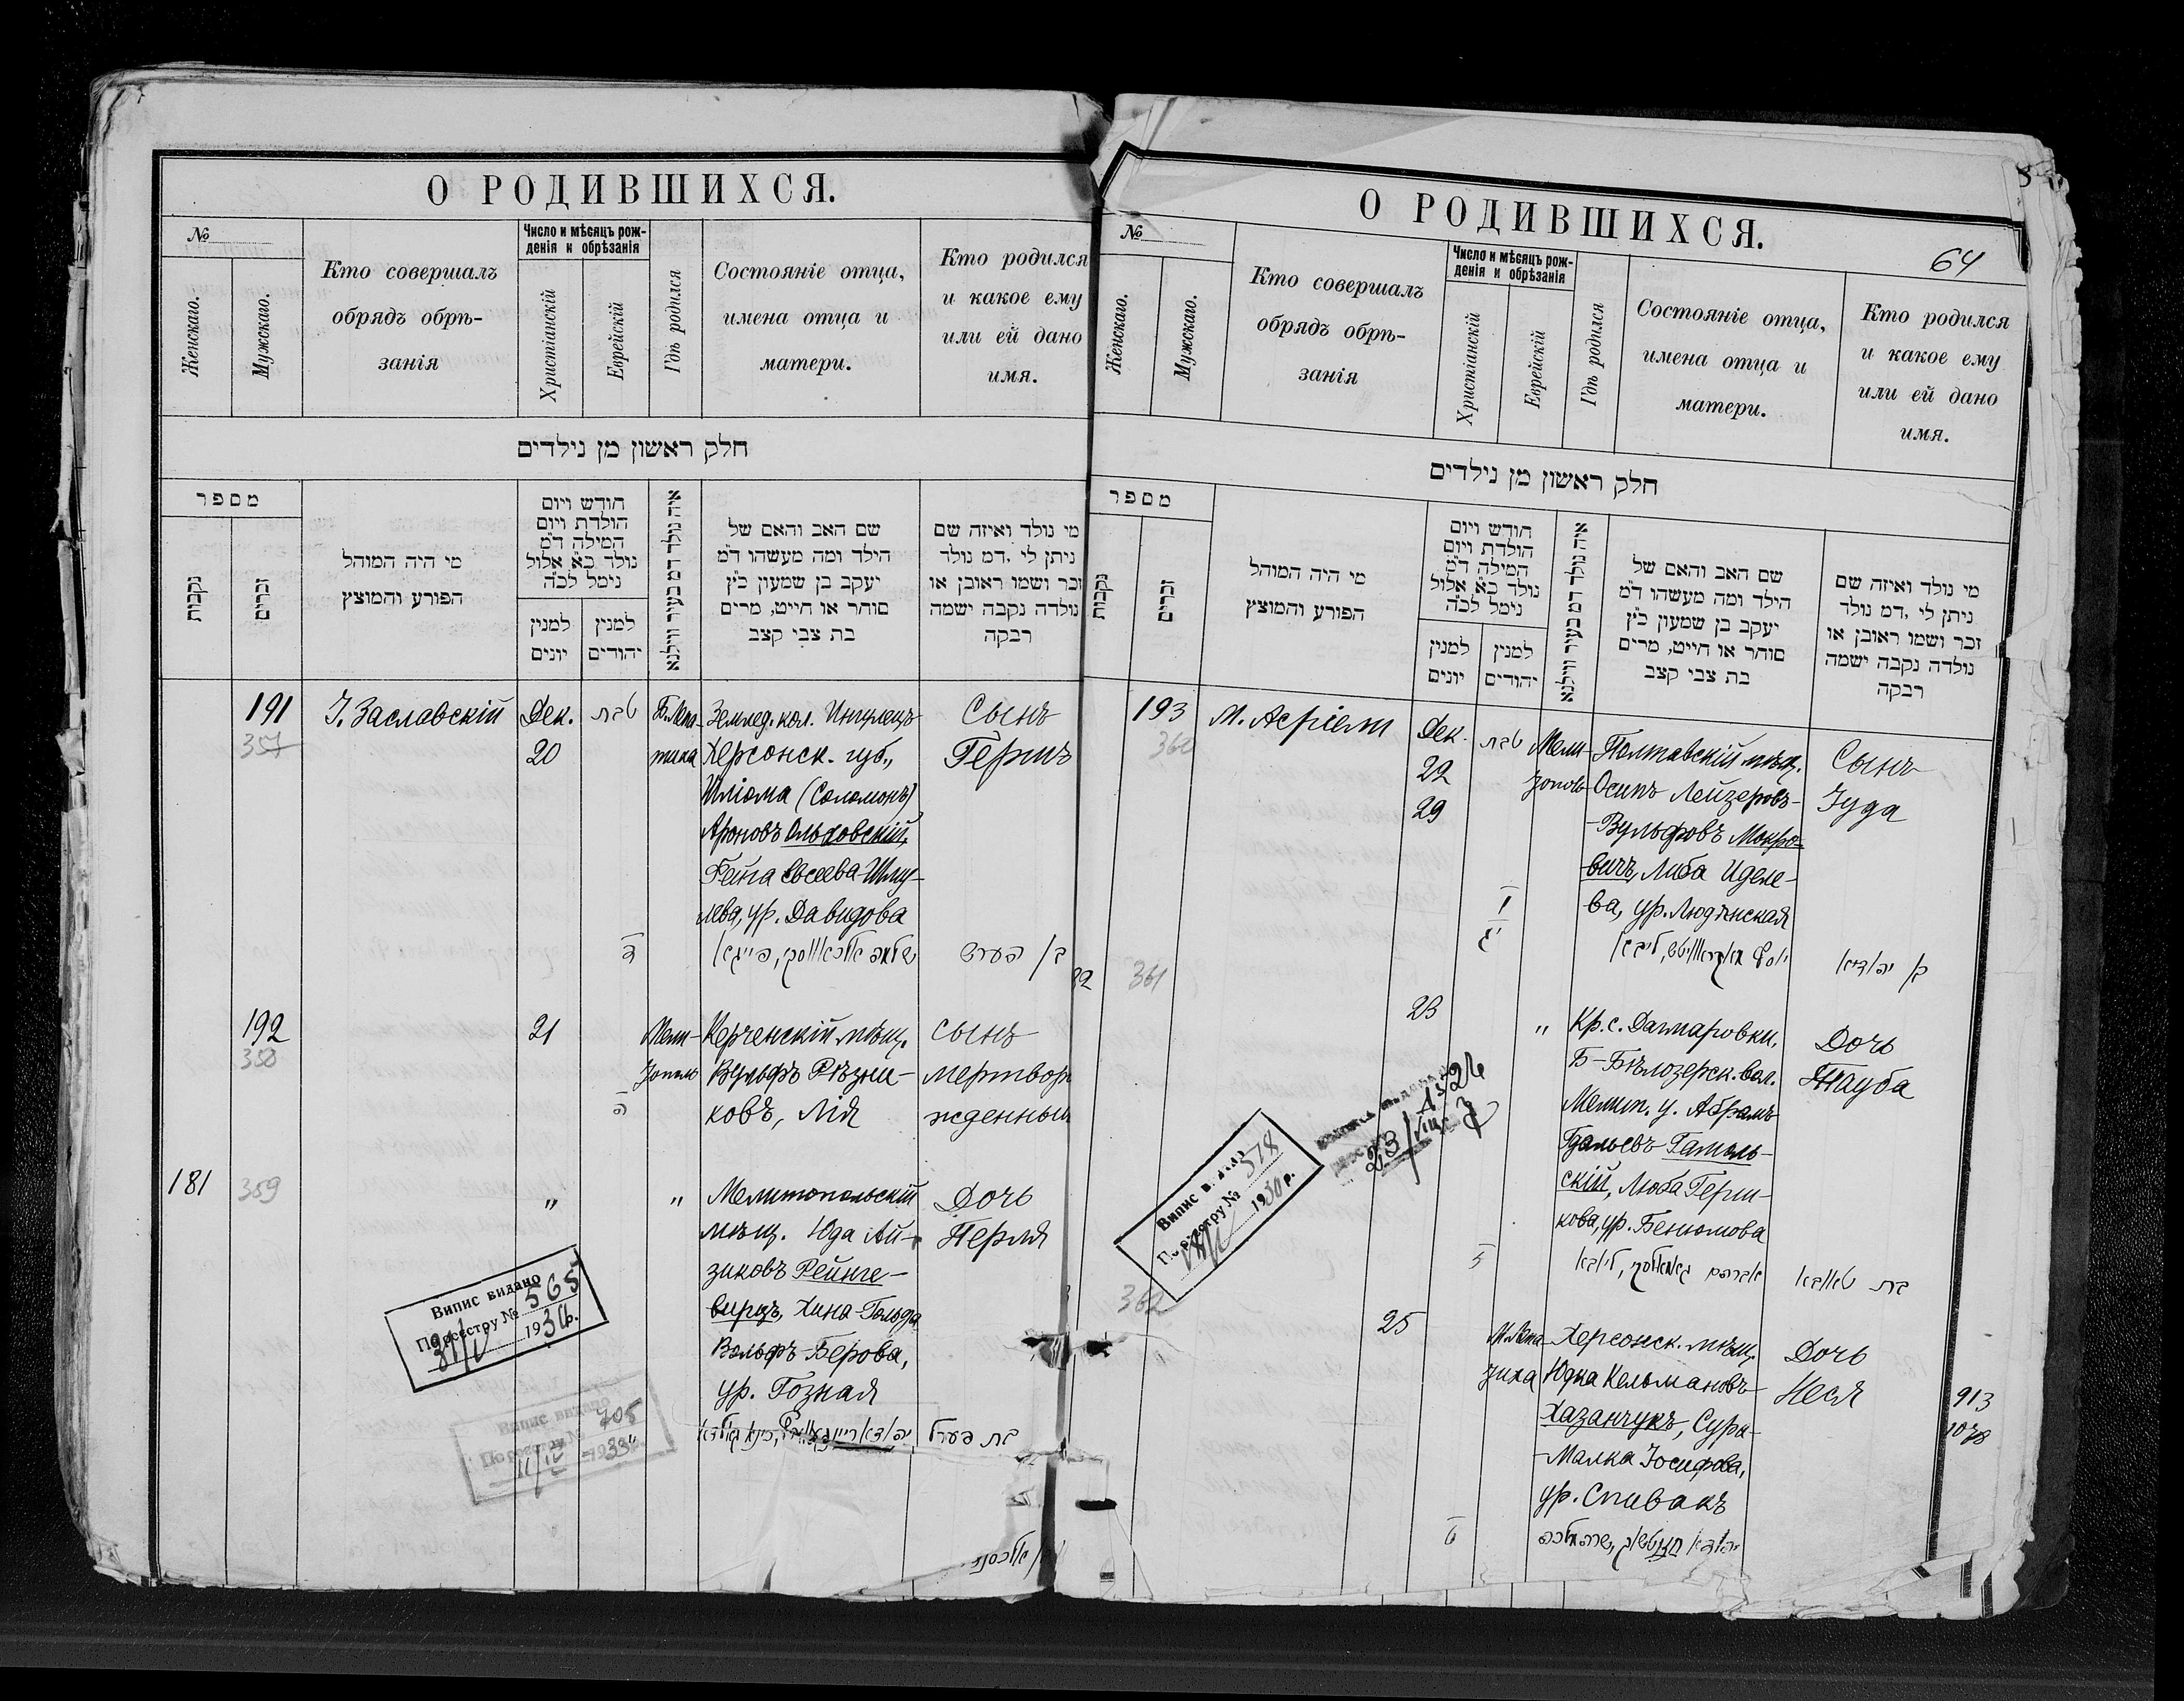 О РОДИВШИХСЯ.
№
Женскаго.
Мужскаго.
Кто совершалъ
обрядъ обрѣ-
занія
Число и мѣсяцъ рож-
денія и обрѣзанія
Христіанскій
Еврейскій
Гдѣ родился
Состояніе отца,
имена отца и
матери.
Кто родился
и какое ему
или ей дано
имя.
חלק ראשון מן נילדים
מספר
נקבות
זכרים
מי היה המוהל
הפורע והמוצץ
חודש ויום
הולדת ויום
המילה ד״מ
נולד כ״א אלול
נימל לכ״ה
למנין
יונים
למנין
יהודים
איה נולד דמ בעיר ווילנא
שם האב והאם של
הילד ומה מעשהו ד״מ
יעקב בן שמעון כ״ץ
סוחר או חייט, מרים
בת צבי קצב
מי נולד ואיזה שם
ניתן לי ,דמ נולד
זכר ושמו ראובן או
נולדה נקבה ישמה
רבקה
191
357
І. Заславскій
Дек.
20
טבת
Б. Лепа-
тиха
Землед. кол. Ингулецъ
Херсонск. губ.,
Шліома (Соломонъ)
Ароновъ Ольховскій,
Фейга Евсеева-Шму-
лева, ур. Давидова
Сынъ
Гершъ
בן הערש
192
358
21
Мели-
тополь
Керченскій мѣщ.
Вульфъ Рѣзни-
ковъ, Лія
Сынъ
мертворо
жденный
181
359
"
"
Мелитопольскій
мѣщ. Юда Ай-
зиковъ Рейнге-
вирцъ, Хина-Гольда
Вольфъ-Берова,
ур. Гозная
Дочь
Перля
בת פערל
Випис видано
По реєстру № 565
31/V 1931р.
Випис видано
По реєстру № 705
11/IV 1933
О РОДИВШИХСЯ.
64
№
Женскаго.
Мужскаго.
Кто совершалъ
обрядъ обрѣ-
занія
Число и мѣсяцъ рож-
денія и обрѣзанія
Христіанскій
Еврейскій
Гдѣ родился
Состояніе отца,
имена отца и
матери.
Кто родился
и какое ему
или ей дано
имя.
חלק ראשון מן נילדים
מספר
נקבות
זכרים
מי היה המוהל
הפורע והמוצץ
חודש ויום
הולדת ויום
המילה ד״מ
נולד כ״א אלול
נימל לכ״ה
למנין
יונים
למנין
יהודים
איה נולד דמ בעיר ווילנא
שם האב והאם של
הילד ומה מעשהו ד״מ
יעקב בן שמעון כ״ץ
סוחר או חייט, מרים
בת צבי קצב
מי נולד ואיזה שם
ניתן לי ,דמ נולד
זכר ושמו ראובן או
נולדה נקבה ישמה
רבקה
193
360
М. Асріели
Дек.
22
29
טבת
Мели-
тополь
Полтавскій мѣщ.
Осипъ Лейзеровъ-
-Вульфовъ Мокро-
вичъ, Либа Иделе-
ва, ур. Людянская
Сынъ
Іуда
361
23
"
Кр. с. Дагмаровки,
Б-Бѣлозерск. вол.
Мелит. у. Абрамъ
Гдальевъ Гатоль-
скій, Люба Герш-
кова, ур. Бенюмова
Дочь
Тауба
Випис видано
По реєстру № 578
1930р.
23/VIII
362
25
М. Лепа-
тиха
Херсонск. мѣщ.
Юдка Кельмановъ
Хазанчукъ, Сура-
-Малка Іосифова,
ур. Спивакъ
Дочь
Неся
913
1038